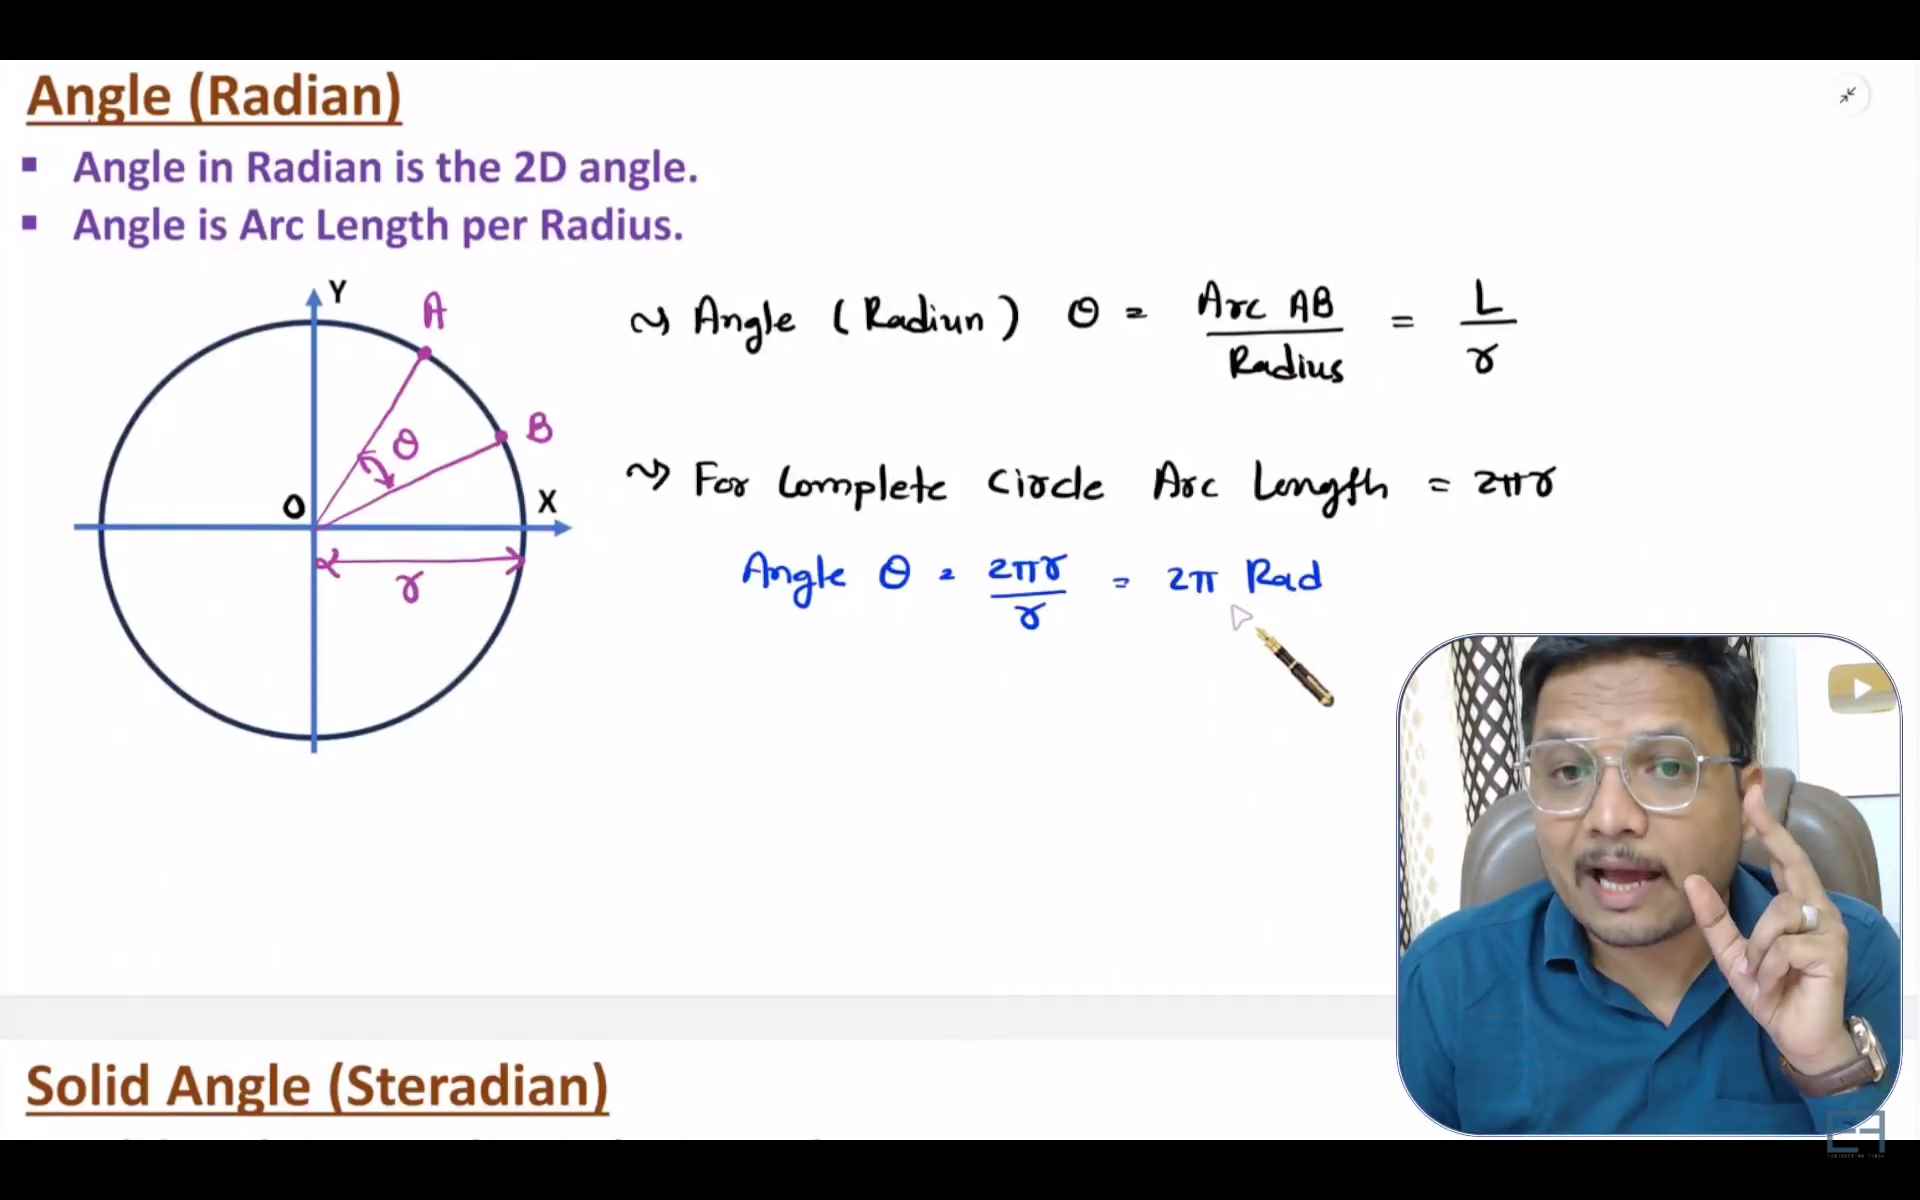 Angle (Radian)
▪ Angle in Radian is the 2D angle.
▪ Angle is Arc Length per Radius.
Y
A
B
θ
O
X
r
⤳ Angle (Radian) θ = Arc AB / Radius = L / r
⤳ For Complete Circle Arc Length = 2πr
Angle θ = 2πr / r = 2π Rad
Solid Angle (Steradian)